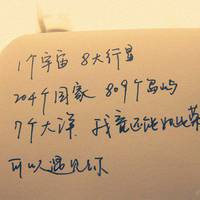 1个宇宙 8大行星
204个国家 809个岛屿
7个大洋 我竟还能如此荣
可以遇见你